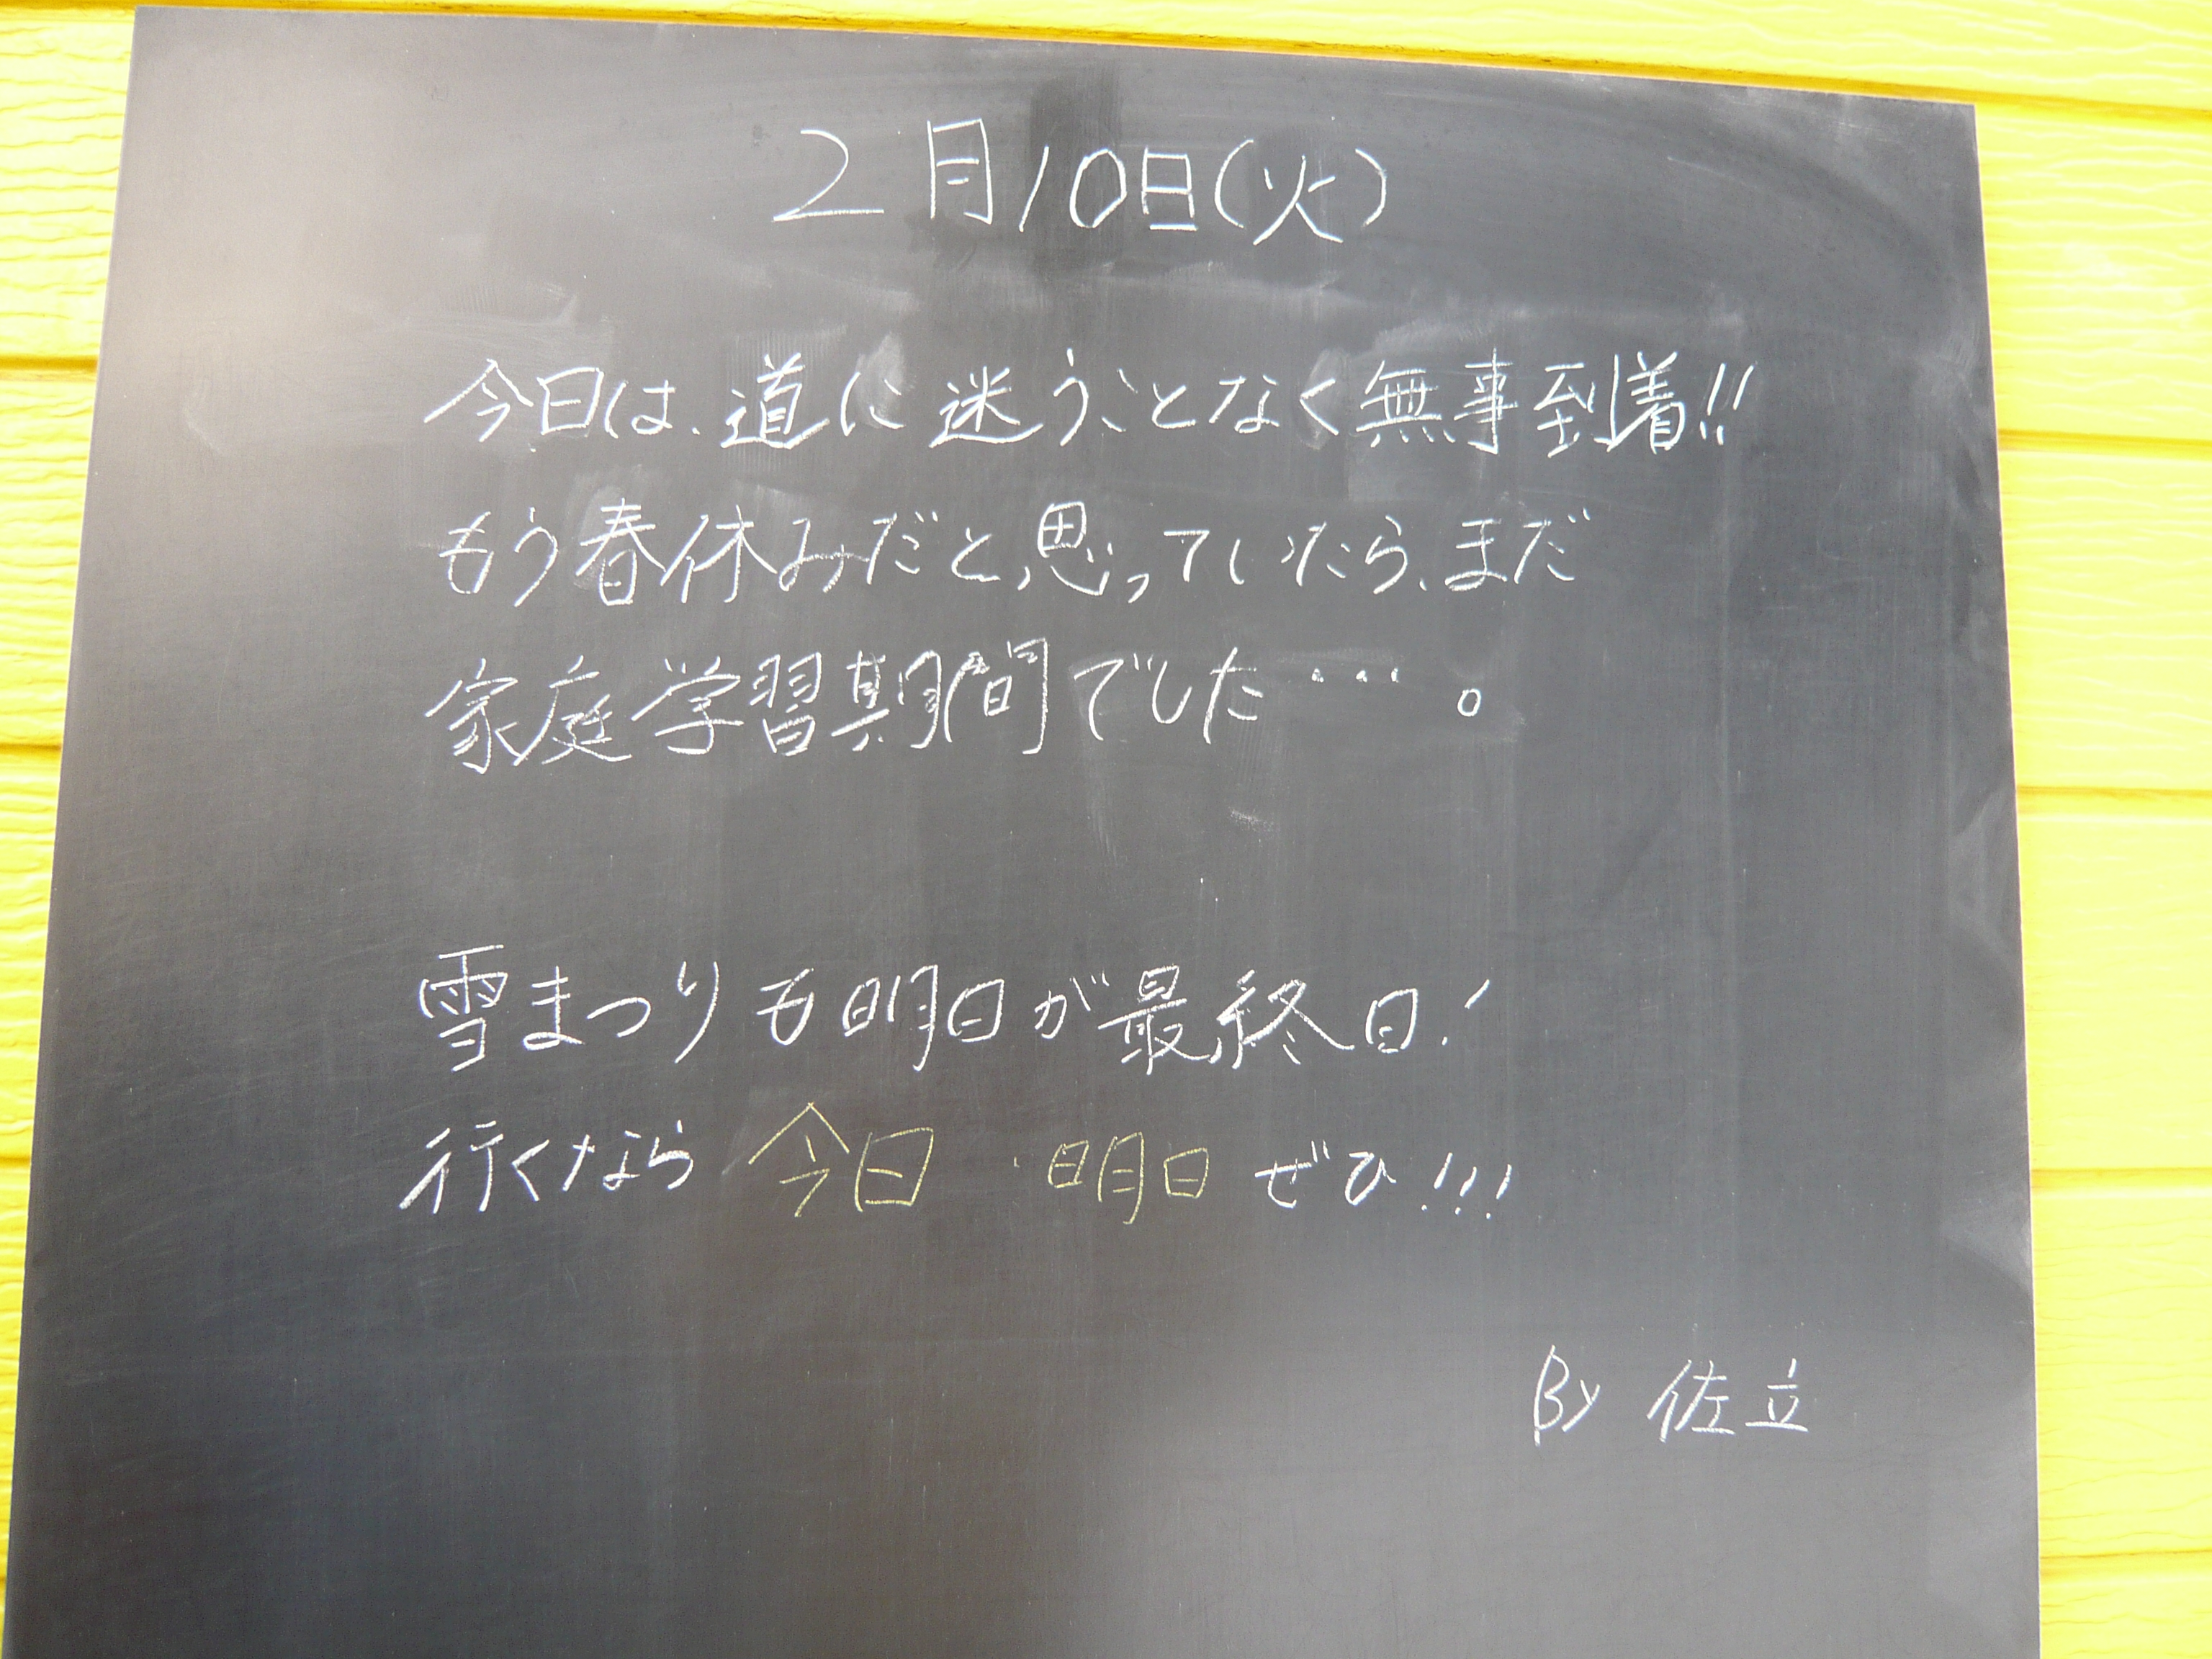 2月10日(火)
今日は、道に迷うことなく無事到着!!
もう春休みだと思っていたら、まだ
家庭学習期間でした…。
雪まつりも明日が最終日!
行くなら 今日・明日 ぜひ!!!
By 佐立